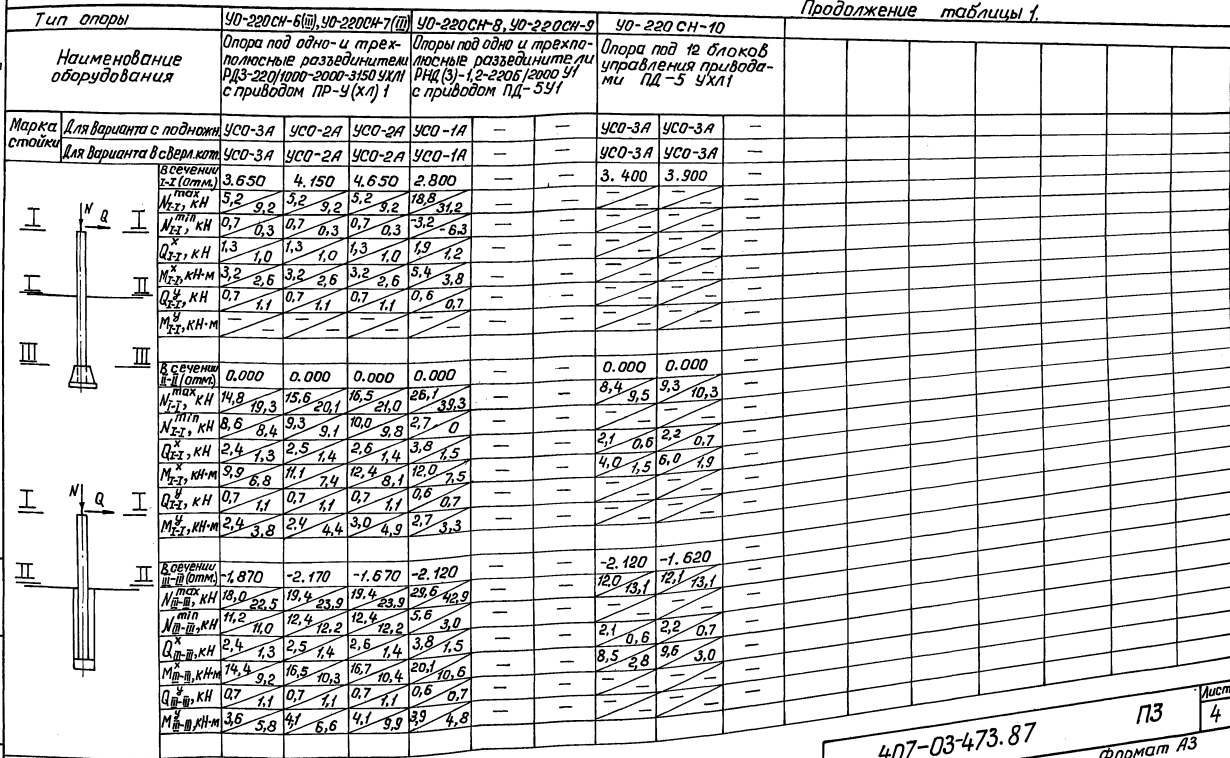 Продолжение таблицы 1.
Тип опоры | УО-220СН-6(III), УО-220СН-7(III) | УО-220СН-8, УО-220СН-9 | УО-220СН-10
Наименование оборудования | Опора под одно- и трех-полюсные разъединители РДЗ-220/1000-2000-3150 УХЛ1 с приводом ПР-У(ХЛ)1 | Опоры под одно и трехпо-люсные разъединители РНД(З)-1,2-220Б/2000 У1 с приводом ПД-5У1 | Опора под 12 блоков управления привода-ми ПД-5 УХЛ1
Марка стойки | Для варианта с подножн. | УСО-3А | УСО-2А | УСО-2А | УСО-1А | — | — | УСО-3А | УСО-3А | —
Для варианта в сверл.кот. | УСО-3А | УСО-2А | УСО-2А | УСО-1А | — | — | УСО-3А | УСО-3А | —
В сечении I-I (отм.) | 3.650 | 4.150 | 4.650 | 2.800 | — | — | 3.400 | 3.900 | —
N max I-I, кН | 5,2 / 9,2 | 5,2 / 9,2 | 5,2 / 9,2 | 18,8 / 31,2 | — | — | — / — | — / — | —
N min I-I, кН | 0,7 / 0,3 | 0,7 / 0,3 | 0,7 / 0,3 | -3,2 / -6,3 | — | — | — / — | — / — | —
Q x I-I, кН | 1,3 / 1,0 | 1,3 / 1,0 | 1,3 / 1,0 | 1,9 / 1,2 | — | — | — / — | — / — | —
M x I-I, кН·м | 3,2 / 2,6 | 3,2 / 2,6 | 3,2 / 2,6 | 5,4 / 3,8 | — | — | — / — | — / — | —
Q y I-I, кН | 0,7 / 1,1 | 0,7 / 1,1 | 0,7 / 1,1 | 0,6 / 0,7 | — | — | — / — | — / — | —
M y I-I, кН·м | — / — | — / — | — / — | — / — | — | — | — / — | — / — | —
В сечении II-II (отм.) | 0.000 | 0.000 | 0.000 | 0.000 | — | — | 0.000 | 0.000 | —
N max I-I, кН | 14,8 / 19,3 | 15,6 / 20,1 | 16,5 / 21,0 | 26,1 / 39,3 | — | — | 8,4 / 9,5 | 9,3 / 10,3 | —
N min I-I, кН | 8,6 / 8,4 | 9,3 / 9,1 | 10,0 / 9,8 | 2,7 / 0 | — | — | — / — | — / — | —
Q x I-I, кН | 2,4 / 1,3 | 2,5 / 1,4 | 2,6 / 1,4 | 3,8 / 1,5 | — | — | 2,1 / 0,6 | 2,2 / 0,7 | —
M x I-I, кН·м | 9,9 / 6,8 | 11,1 / 7,4 | 12,4 / 8,1 | 12,0 / 7,5 | — | — | 4,0 / 1,5 | 6,0 / 1,9 | —
Q y I-I, кН | 0,7 / 1,1 | 0,7 / 1,1 | 0,7 / 1,1 | 0,6 / 0,7 | — | — | — / — | — / — | —
M y I-I, кН·м | 2,4 / 3,8 | 2,4 / 4,4 | 3,0 / 4,9 | 2,7 / 3,3 | — | — | — / — | — / — | —
В сечении III-III (отм.) | -1,870 | -2.170 | -1.670 | -2.120 | — | — | -2.120 | -1.620 | —
N max III-III, кН | 18,0 / 22,5 | 19,4 / 23,9 | 19,4 / 23,9 | 29,6 / 42,9 | — | — | 12,0 / 13,1 | 12,1 / 13,1 | —
N min III-III, кН | 11,2 / 11,0 | 12,4 / 12,2 | 12,4 / 12,2 | 5,6 / 3,0 | — | — | — / — | — / — | —
Q x III-III, кН | 2,4 / 1,3 | 2,5 / 1,4 | 2,6 / 1,4 | 3,8 / 1,5 | — | — | 2,1 / 0,6 | 2,2 / 0,7 | —
M x III-III, кН·м | 14,4 / 9,2 | 16,5 / 10,3 | 16,7 / 10,4 | 20,1 / 10,6 | — | — | 8,5 / 2,8 | 9,6 / 3,0 | —
Q y III-III, кН | 0,7 / 1,1 | 0,7 / 1,1 | 0,7 / 1,1 | 0,6 / 0,7 | — | — | — / — | — / — | —
M y III-III, кН·м | 3,6 / 5,8 | 4,1 / 6,6 | 4,1 / 9,9 | 3,9 / 4,8 | — | — | — / — | — / — | —
N Q
I I
II II
III III
N Q
I I
II II
407-03-473.87 ПЗ
Лист
4
Формат А3